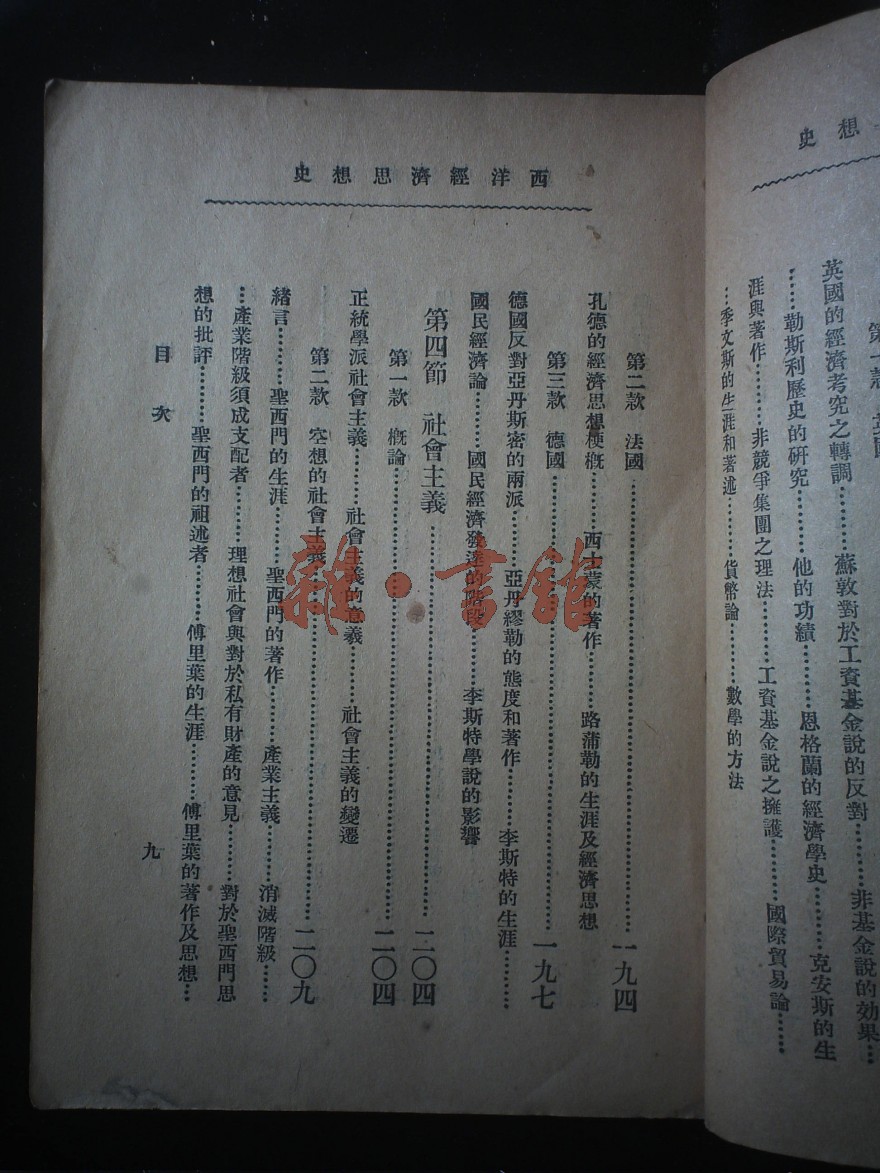 史想
第一款　英國
英國的經濟考究之轉調………蘇敦對於工資基金說的反對………非基金說的效果…
……勒斯利歷史的研究………他的功績………恩格蘭的經濟學史………克安斯的生
涯與著作………非競爭集團之理法………工資基金說之擁護………國際貿易論……
…季文斯的生涯和著述………貨幣論………數學的方法
史想思濟經洋西
第二款　法國………一九四
孔德的經濟思想梗概………西士蒙的著作………路蒲勒的生涯及經濟思想
第三款　德國………一九七
德國反對亞丹斯密的兩派………亞丹繆勒的態度和著作………李斯特的生涯………
國民經濟論………國民經濟發達的階段………李斯特學說的影響
第四節　社會主義………二〇四
第一款　概論………二〇四
正統學派社會主義………社會主義的意義………社會主義的變遷
第二款　空想的社會主義………二〇九
緒言………聖西門的生涯………聖西門的著作………產業主義………消滅階級……
…產業階級須成支配者………理想社會與對於私有財產的意見………對於聖西門思
想的批評………聖西門的祖述者………傅里葉的生涯………傅里葉的著作及思想…
目次
九
雜·書館